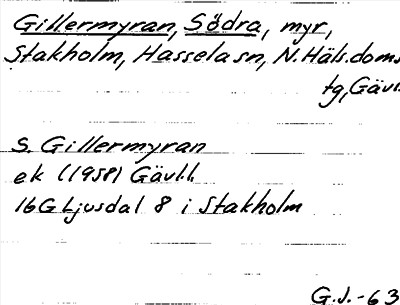 Gillermyran, Södra, myr,
Stakholm, Hassela sn, N. Häls. doms
tg, Gävl.
S. Gillermyran
ek (1958) Gävl.l.
16G Ljusdal 8 i Stakholm
G.J.-63